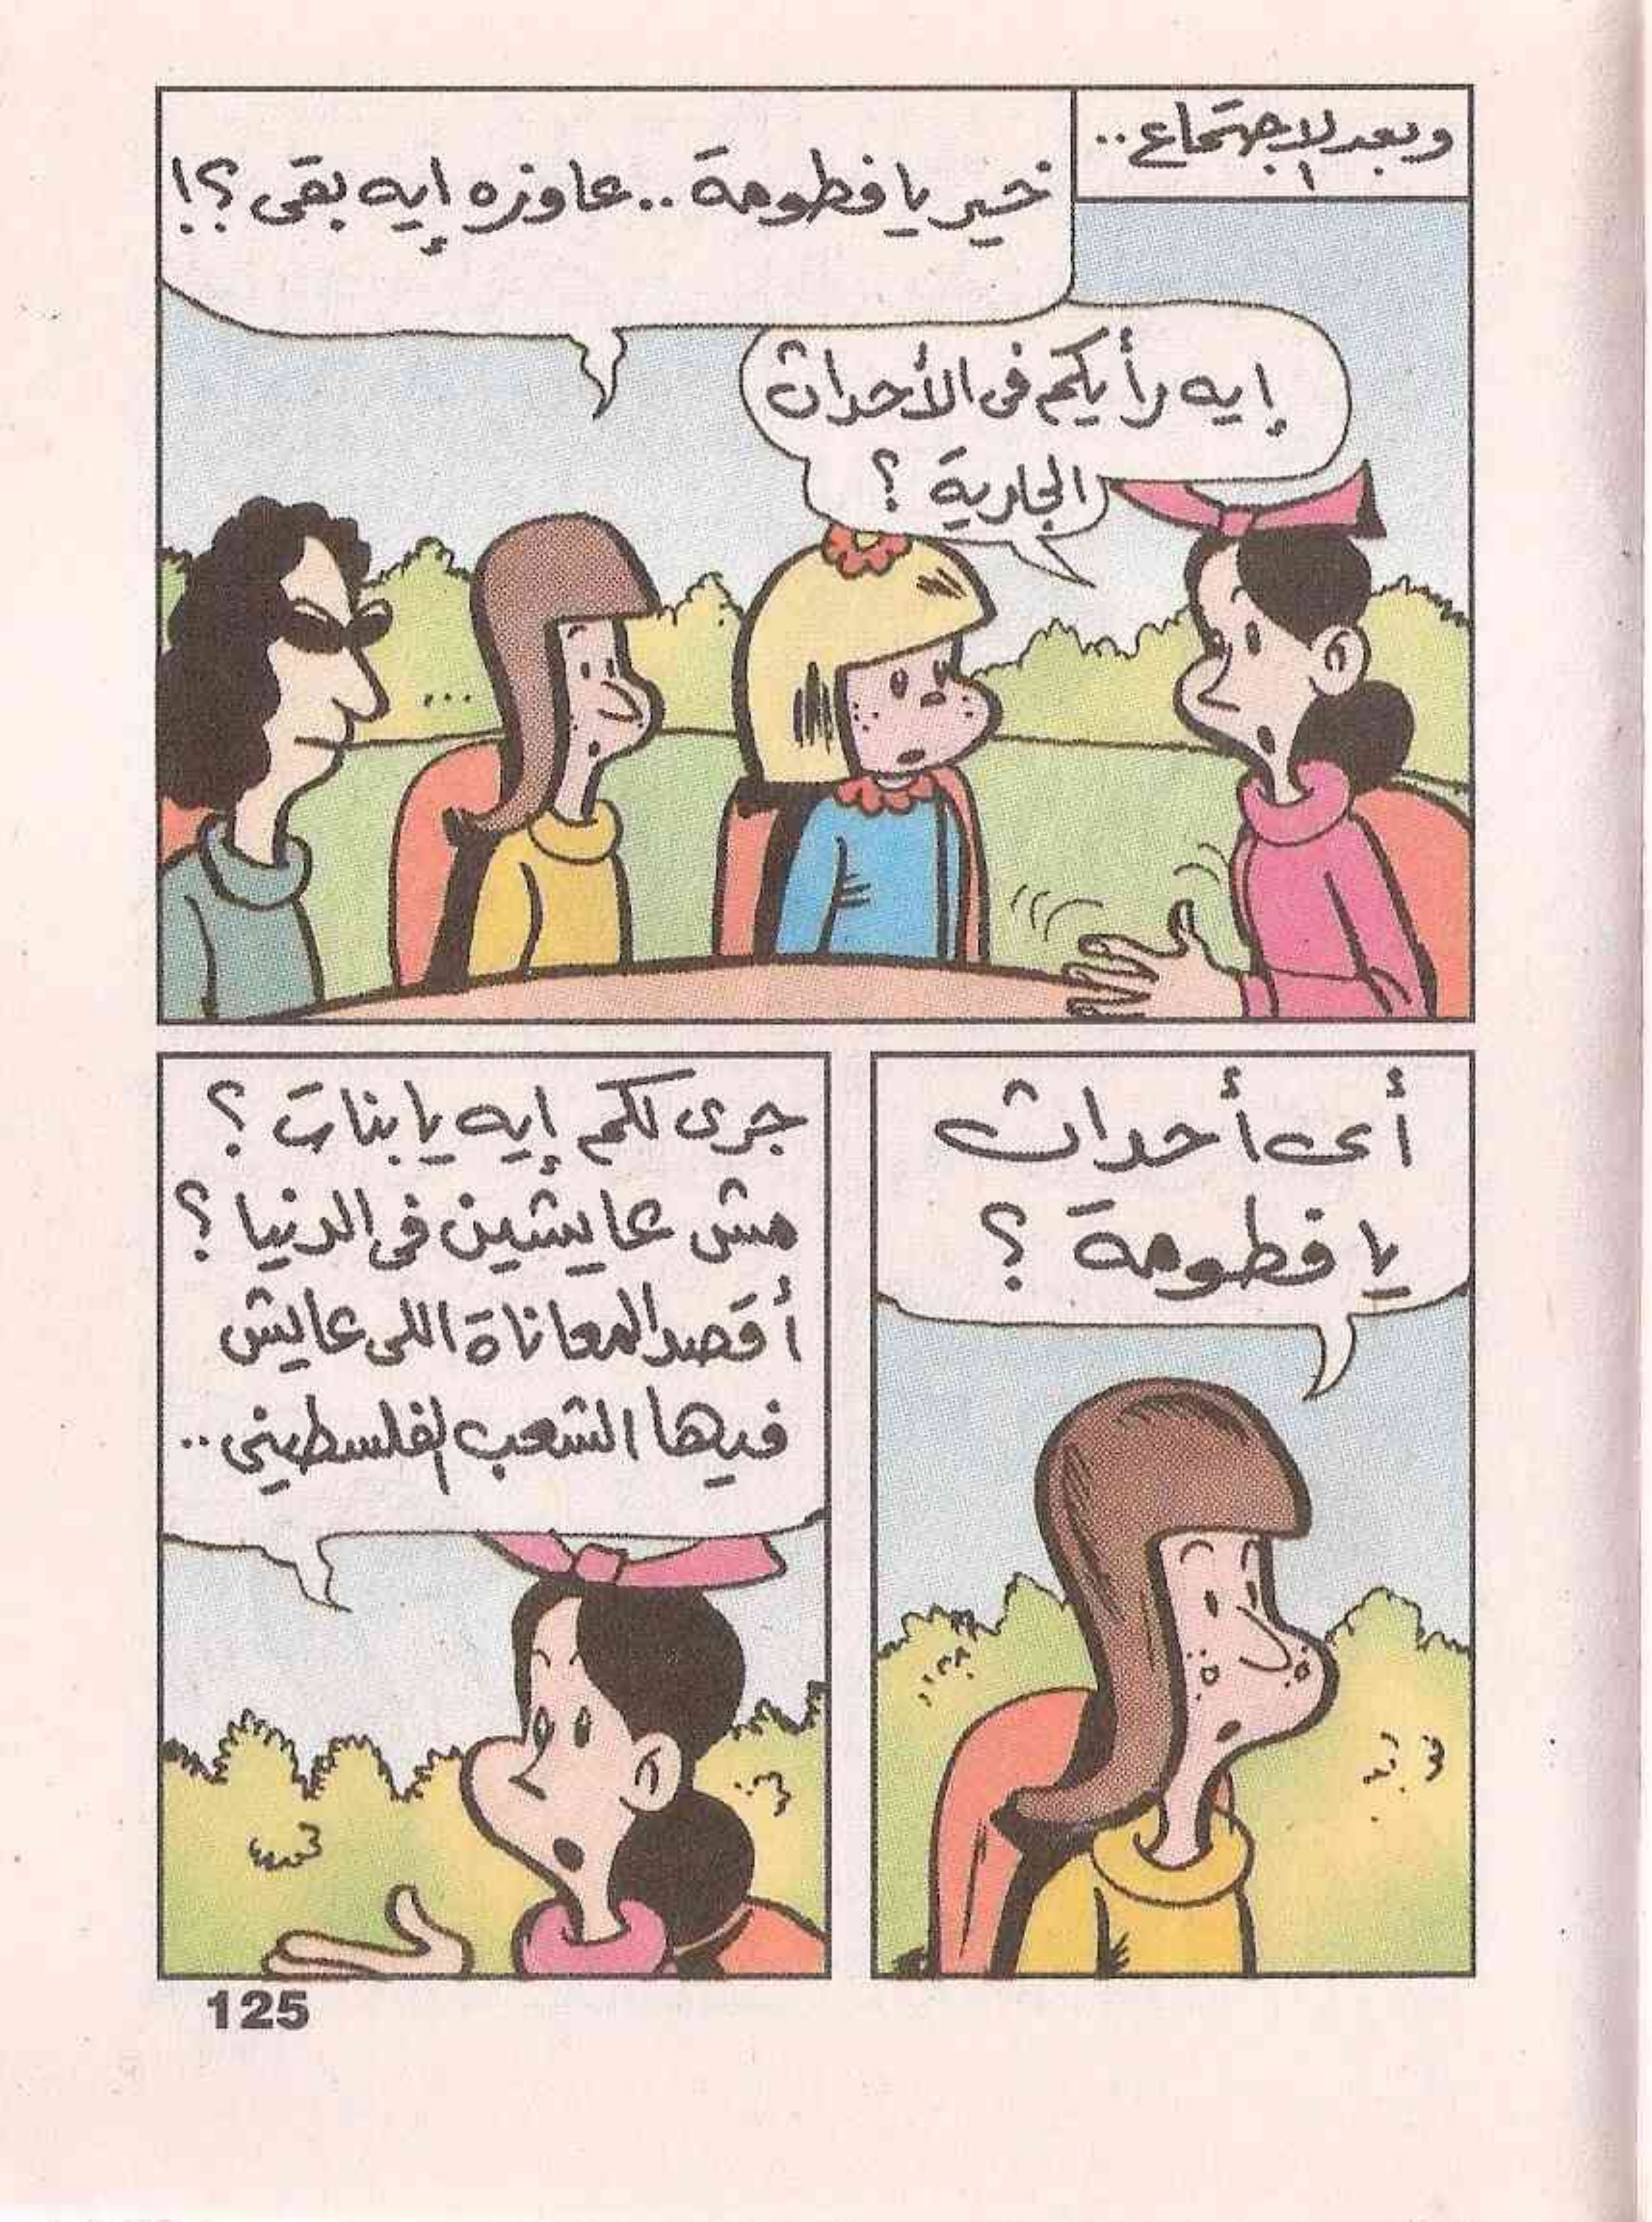 وبعد الاجتماع..
خير يا فطومة.. عاوزه إيه بقى؟!
إيه رأيكم فى الأحداث
الجارية؟
أى أحداث
يا فطومة؟
جرى لكم إيه يا بنات؟
مش عايشين فى الدنيا؟
أقصد المعاناة اللى عايش
فيها الشعب الفلسطينى..
125